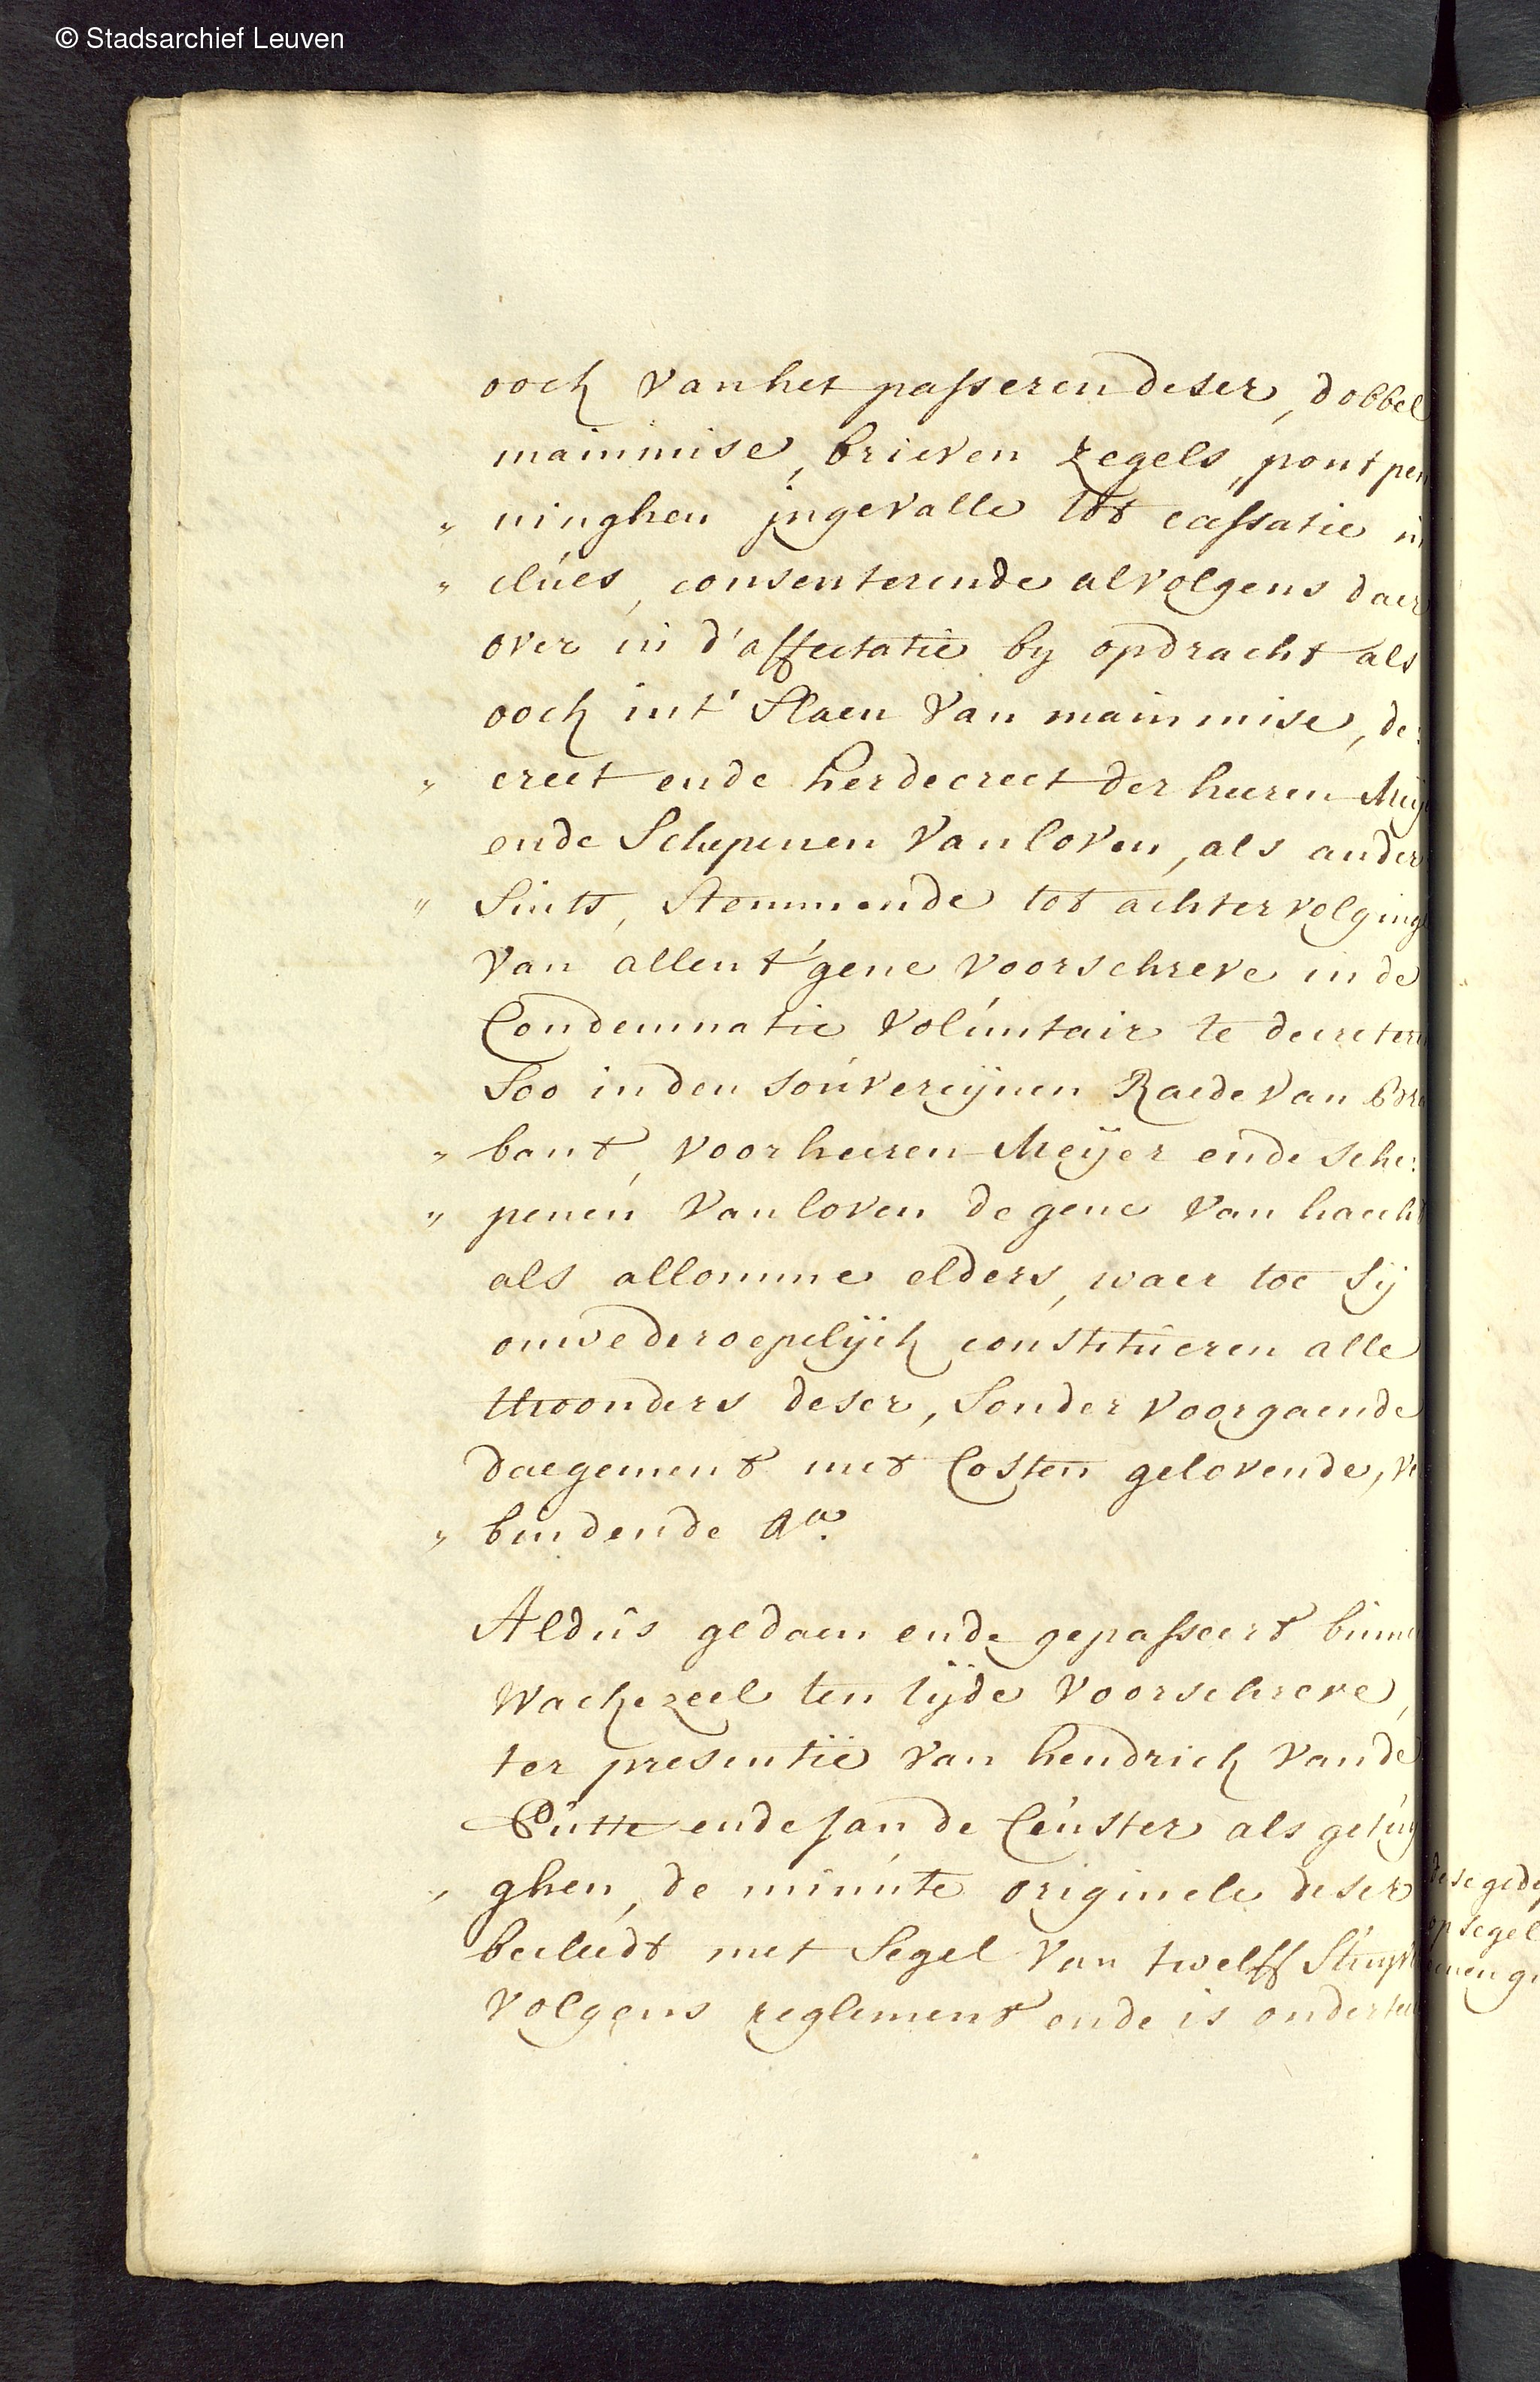 © Stadsarchief Leuven
oock van het passeren deser, dobbel
mainmise, brieven zegels, pont pen
" ninghen jngevalle tot cassatie in
" clúes, consenterende alvolgens daer
over in d'affectatie by opdracht als
ooch int' slaen van mainmise, de:
" creet ende herdecreet der heeren Meij
ende Schepenen van loven, als ander
" Sints, stemmende tot achtervolging
van allen t'gene voorschreve in de
Condemnatie volúntair te decretere
Soo in den soúvereijnen Raede van Bra
" bant, voor heeren Meijer ende sche:
" penen van loven de gene van haecht
als allomme elders, waer toe sij
onwederoepelijck constitúeren alle
thoonders deser, sonder voorgaende
daegement met Costen gelovende, ve
" bindende &a.
Aldús gedaen ende gepasseert binne
Wackezeel ten tijde voorschreve,
ter presentie van hendrick vande
Pútte ende Jan de Ceúster als getúij
" ghen, de minúte originele deser
becleedt met Segel van twelff Stuyv
volgens reglement ende is ondertee
dese gede
op segel